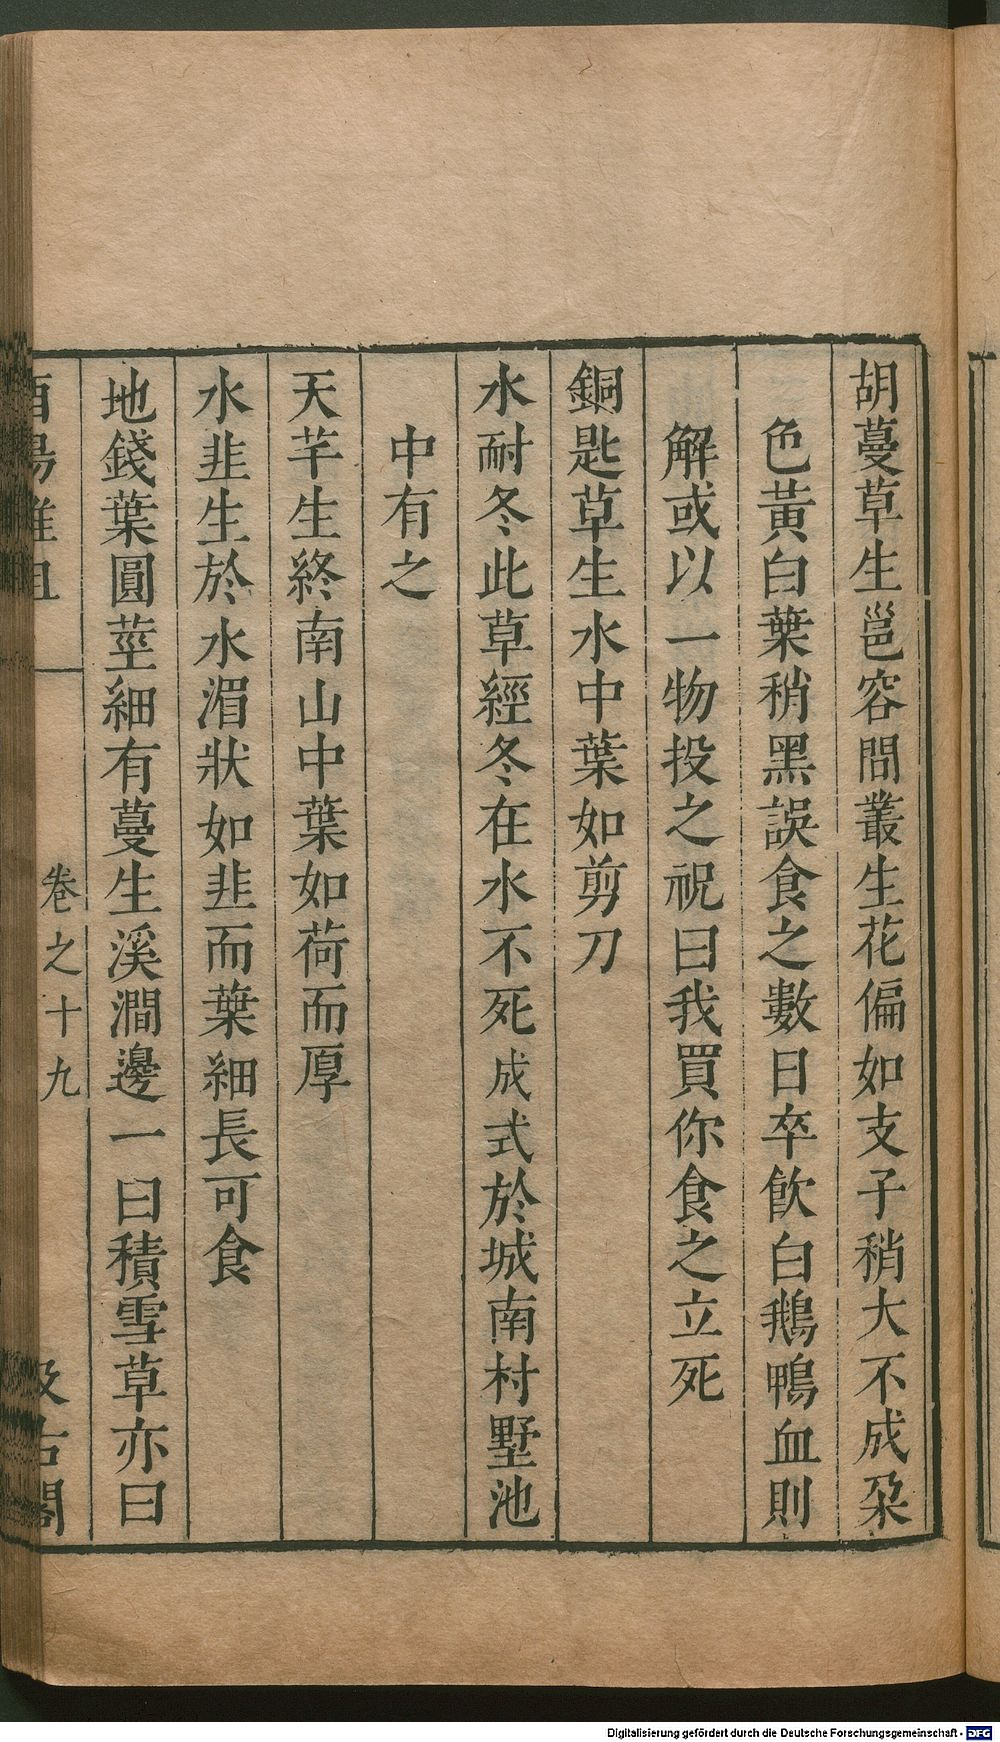 胡蔓草生邕容間叢生花偏如支子稍大不成朶
色黃白葉稍黑誤食之數日卒飲白鵝鴨血則
解或以一物投之祝曰我買你食之立死
銅匙草生水中葉如剪刀
水耐冬此草經冬在水不死成式於城南村墅池
中有之
天芊生終南山中葉如荷而厚
水韭生於水湄狀如韭而葉細長可食
地錢葉圓莖細有蔓生溪澗邊一曰積雪草亦曰
酉陽雜俎
卷之十九
汲古閣
Digitalisierung gefördert durch die Deutsche Forschungsgemeinschaft - DFG